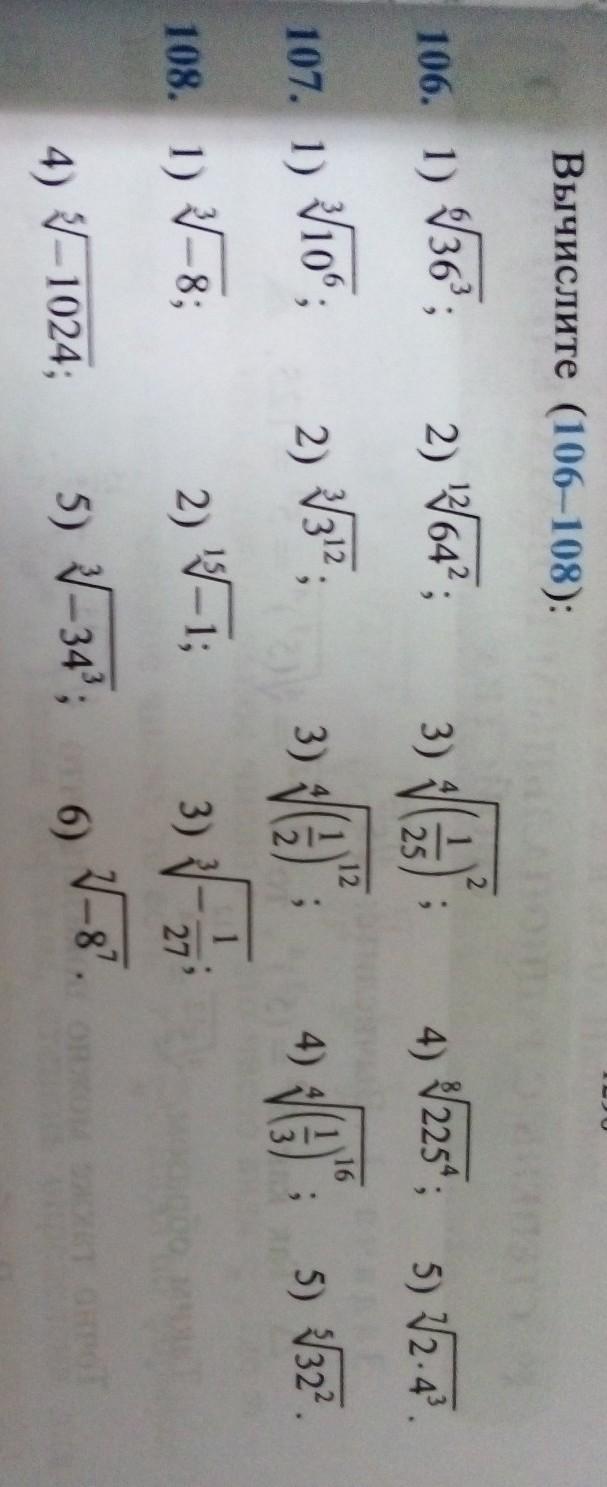 Вычислите (106–108):
106. 1) ⁶√36³; 2) ¹²√64²; 3) ⁴√(1/25)²; 4) ⁸√225⁴; 5) ⁷√2·4³.
107. 1) ³√10⁶; 2) ³√3¹²; 3) ⁴√(1/2)¹²; 4) ⁴√(1/3)¹⁶; 5) ⁵√32².
108. 1) ³√−8; 2) ¹⁵√−1; 3) ³√−1/27;
4) ⁵√−1024; 5) ³√−34³; 6) ⁷√−8⁷.